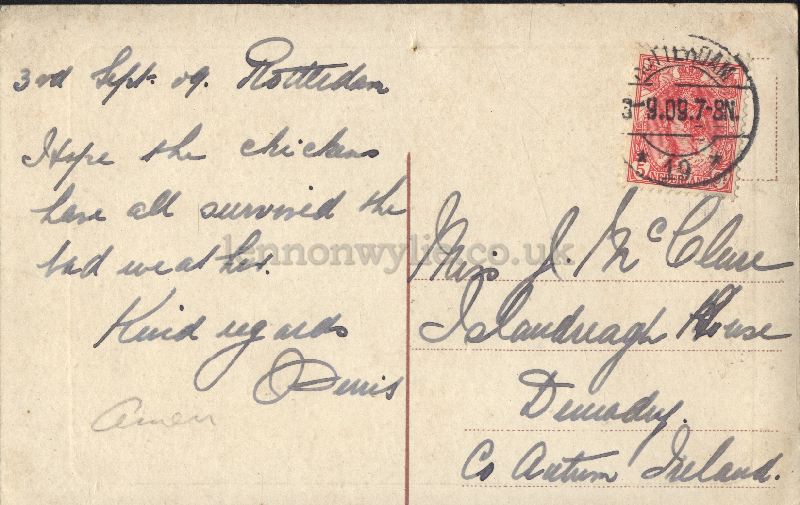 3rd Sept. 09. Rotterdam
Hope the chickens
have all survived the
bad weather.
Kind regards
Denis
amen
ROTTERDAM
3-9.09.7-8N.
19
5 NEDERLAND
Miss J. McClure
Islandreagh House
Dunadry.
Co Antrim Ireland.
lennonwylie.co.uk